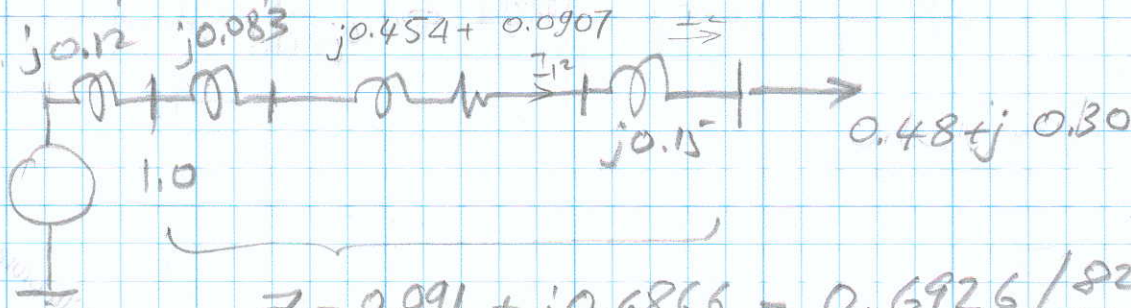 j0.12 j0.083 j0.454+ 0.0907
I12
j0.15
0.48+j 0.30
1.0
Z = 0.091 + j0.6866 = 0.6926 /82